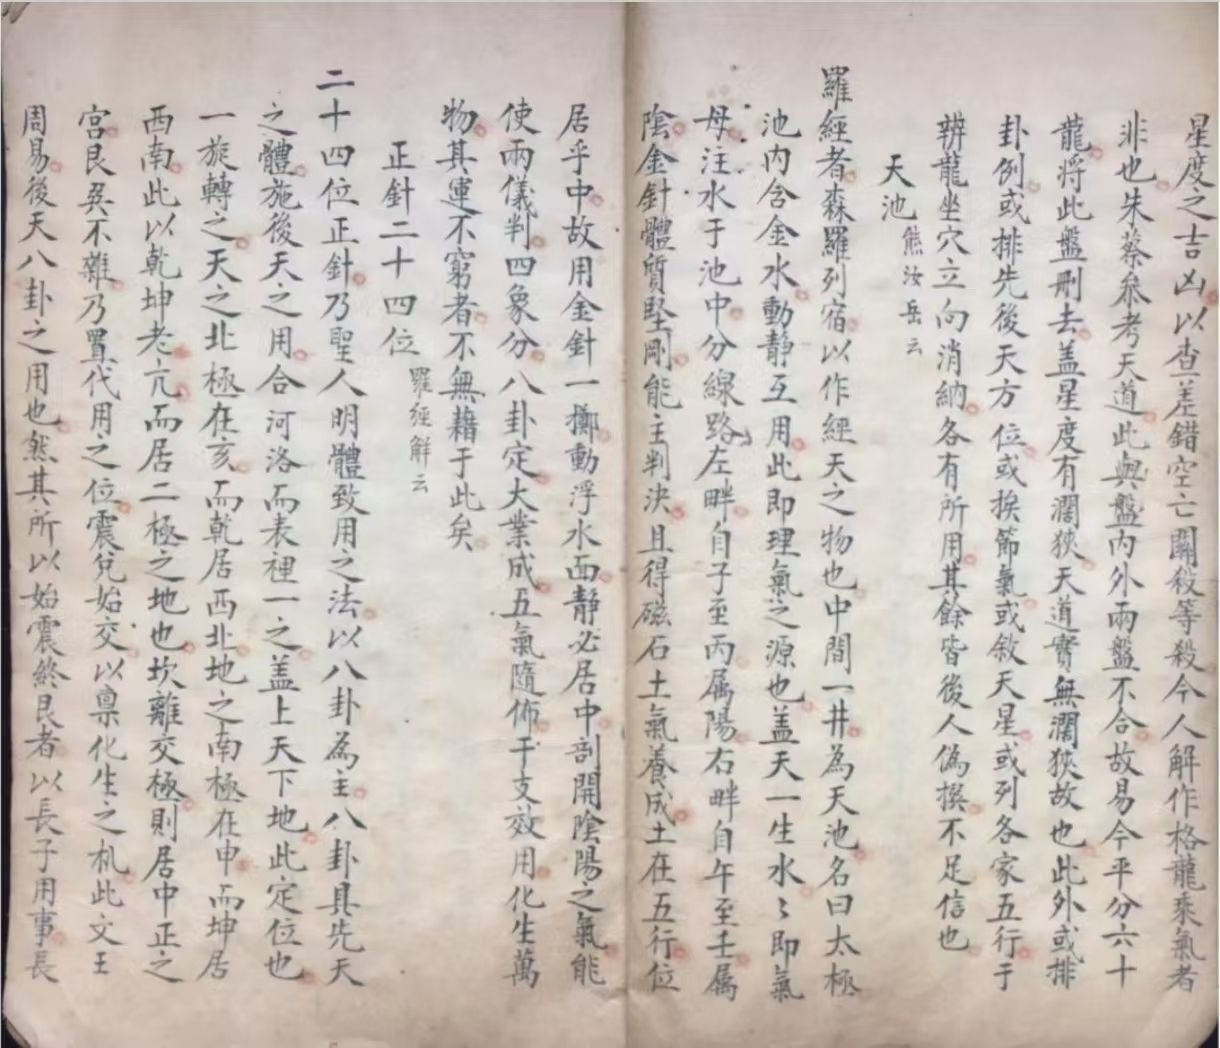 星度之吉凶以查差錯空亡關殺等殺今人解作格龍乘氣者
非也朱蔡叅考天道此與盤内外兩盤不合故易今平分六十
龍将此盤刪去盖星度有濶狹天道實無濶狹故也此外或排
卦例或排先後天方位或挨節氣或敘天星或列各家五行于
辨龍坐穴立向消納各有所用其餘皆後人偽撰不足信也
天池 熊汝岳云
羅經者森羅列宿以作經天之物也中間一井為天池名曰太極
池内含金水動静互用此即理氣之源也盖天一生水〻即氣
母注水于池中分線路左畔自子至丙属陽右畔自午至壬属
陰金針體質堅剛能主判决且得磁石土氣養成土在五行位
居乎中故用金針一擲動浮水面静必居中剖開陰陽之氣能
使兩儀判四象分八卦定大業成五氣隨佈干支效用化生萬
物其運不窮者不無藉于此矣
正針二十四位 羅經解云
二十四位正針乃聖人明體致用之法以八卦為主八卦具先天
之體施後天之用合河洛而表裡一之盖上天下地此定位也
一旋轉之天之北極在亥而乾居西北地之南極在申而坤居
西南此以乾坤老亢而居二極之地也坎離交極則居中正之
宮艮巽不雜乃置代用之位震兌始交以禀化生之机此文王
周易後天八卦之用也然其所以始震終艮者以長子用事長